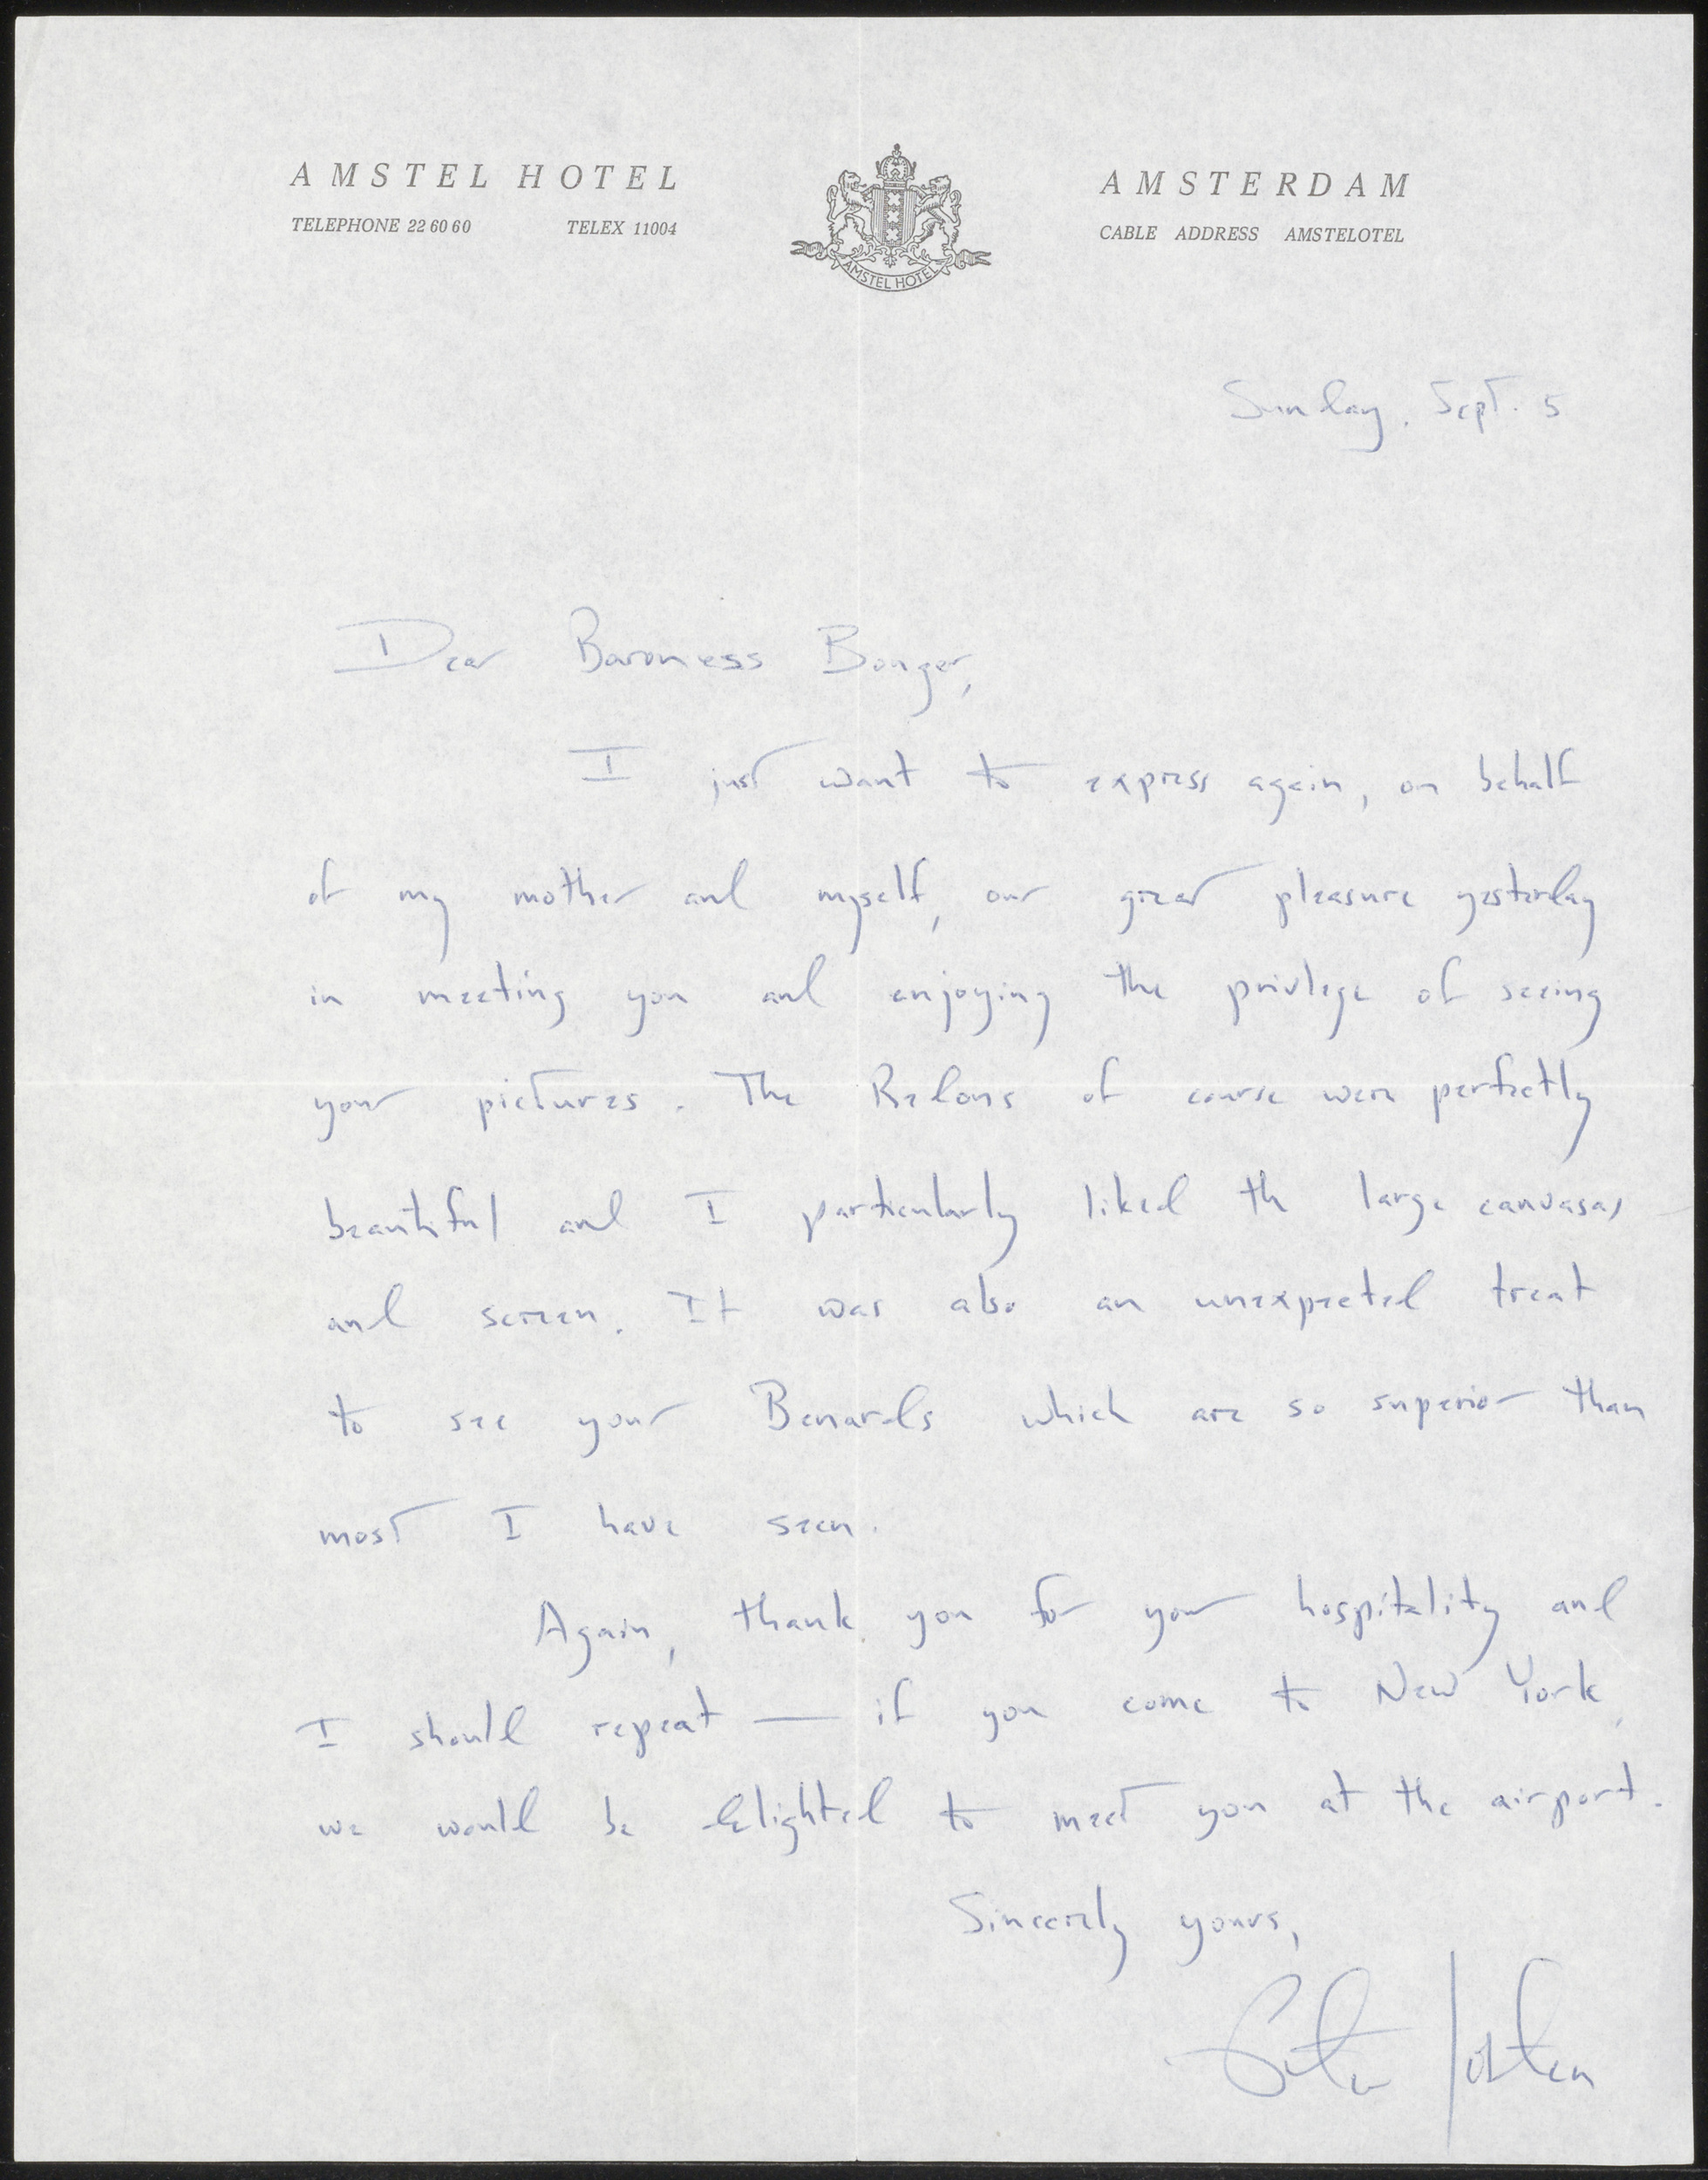 AMSTEL HOTEL
TELEPHONE 22 60 60 TELEX 11004
AMSTEL HOTEL
AMSTERDAM
CABLE ADDRESS AMSTELOTEL
Sunday, Sept. 5
Dear Baroness Bonger,
I just want to express again, on behalf
of my mother and myself, our great pleasure yesterday
in meeting you and enjoying the privlege of seeing
your pictures. The Redons of course were perfectly
beautiful and I particularly liked th large canvases
and screen. It was also an unexpected treat
to see your Benards which are so superior than
most I have seen.
Again, thank you for your hospitality and
I should repeat — if you come to New York,
we would be delighted to meet you at the airport.
Sincerely yours,